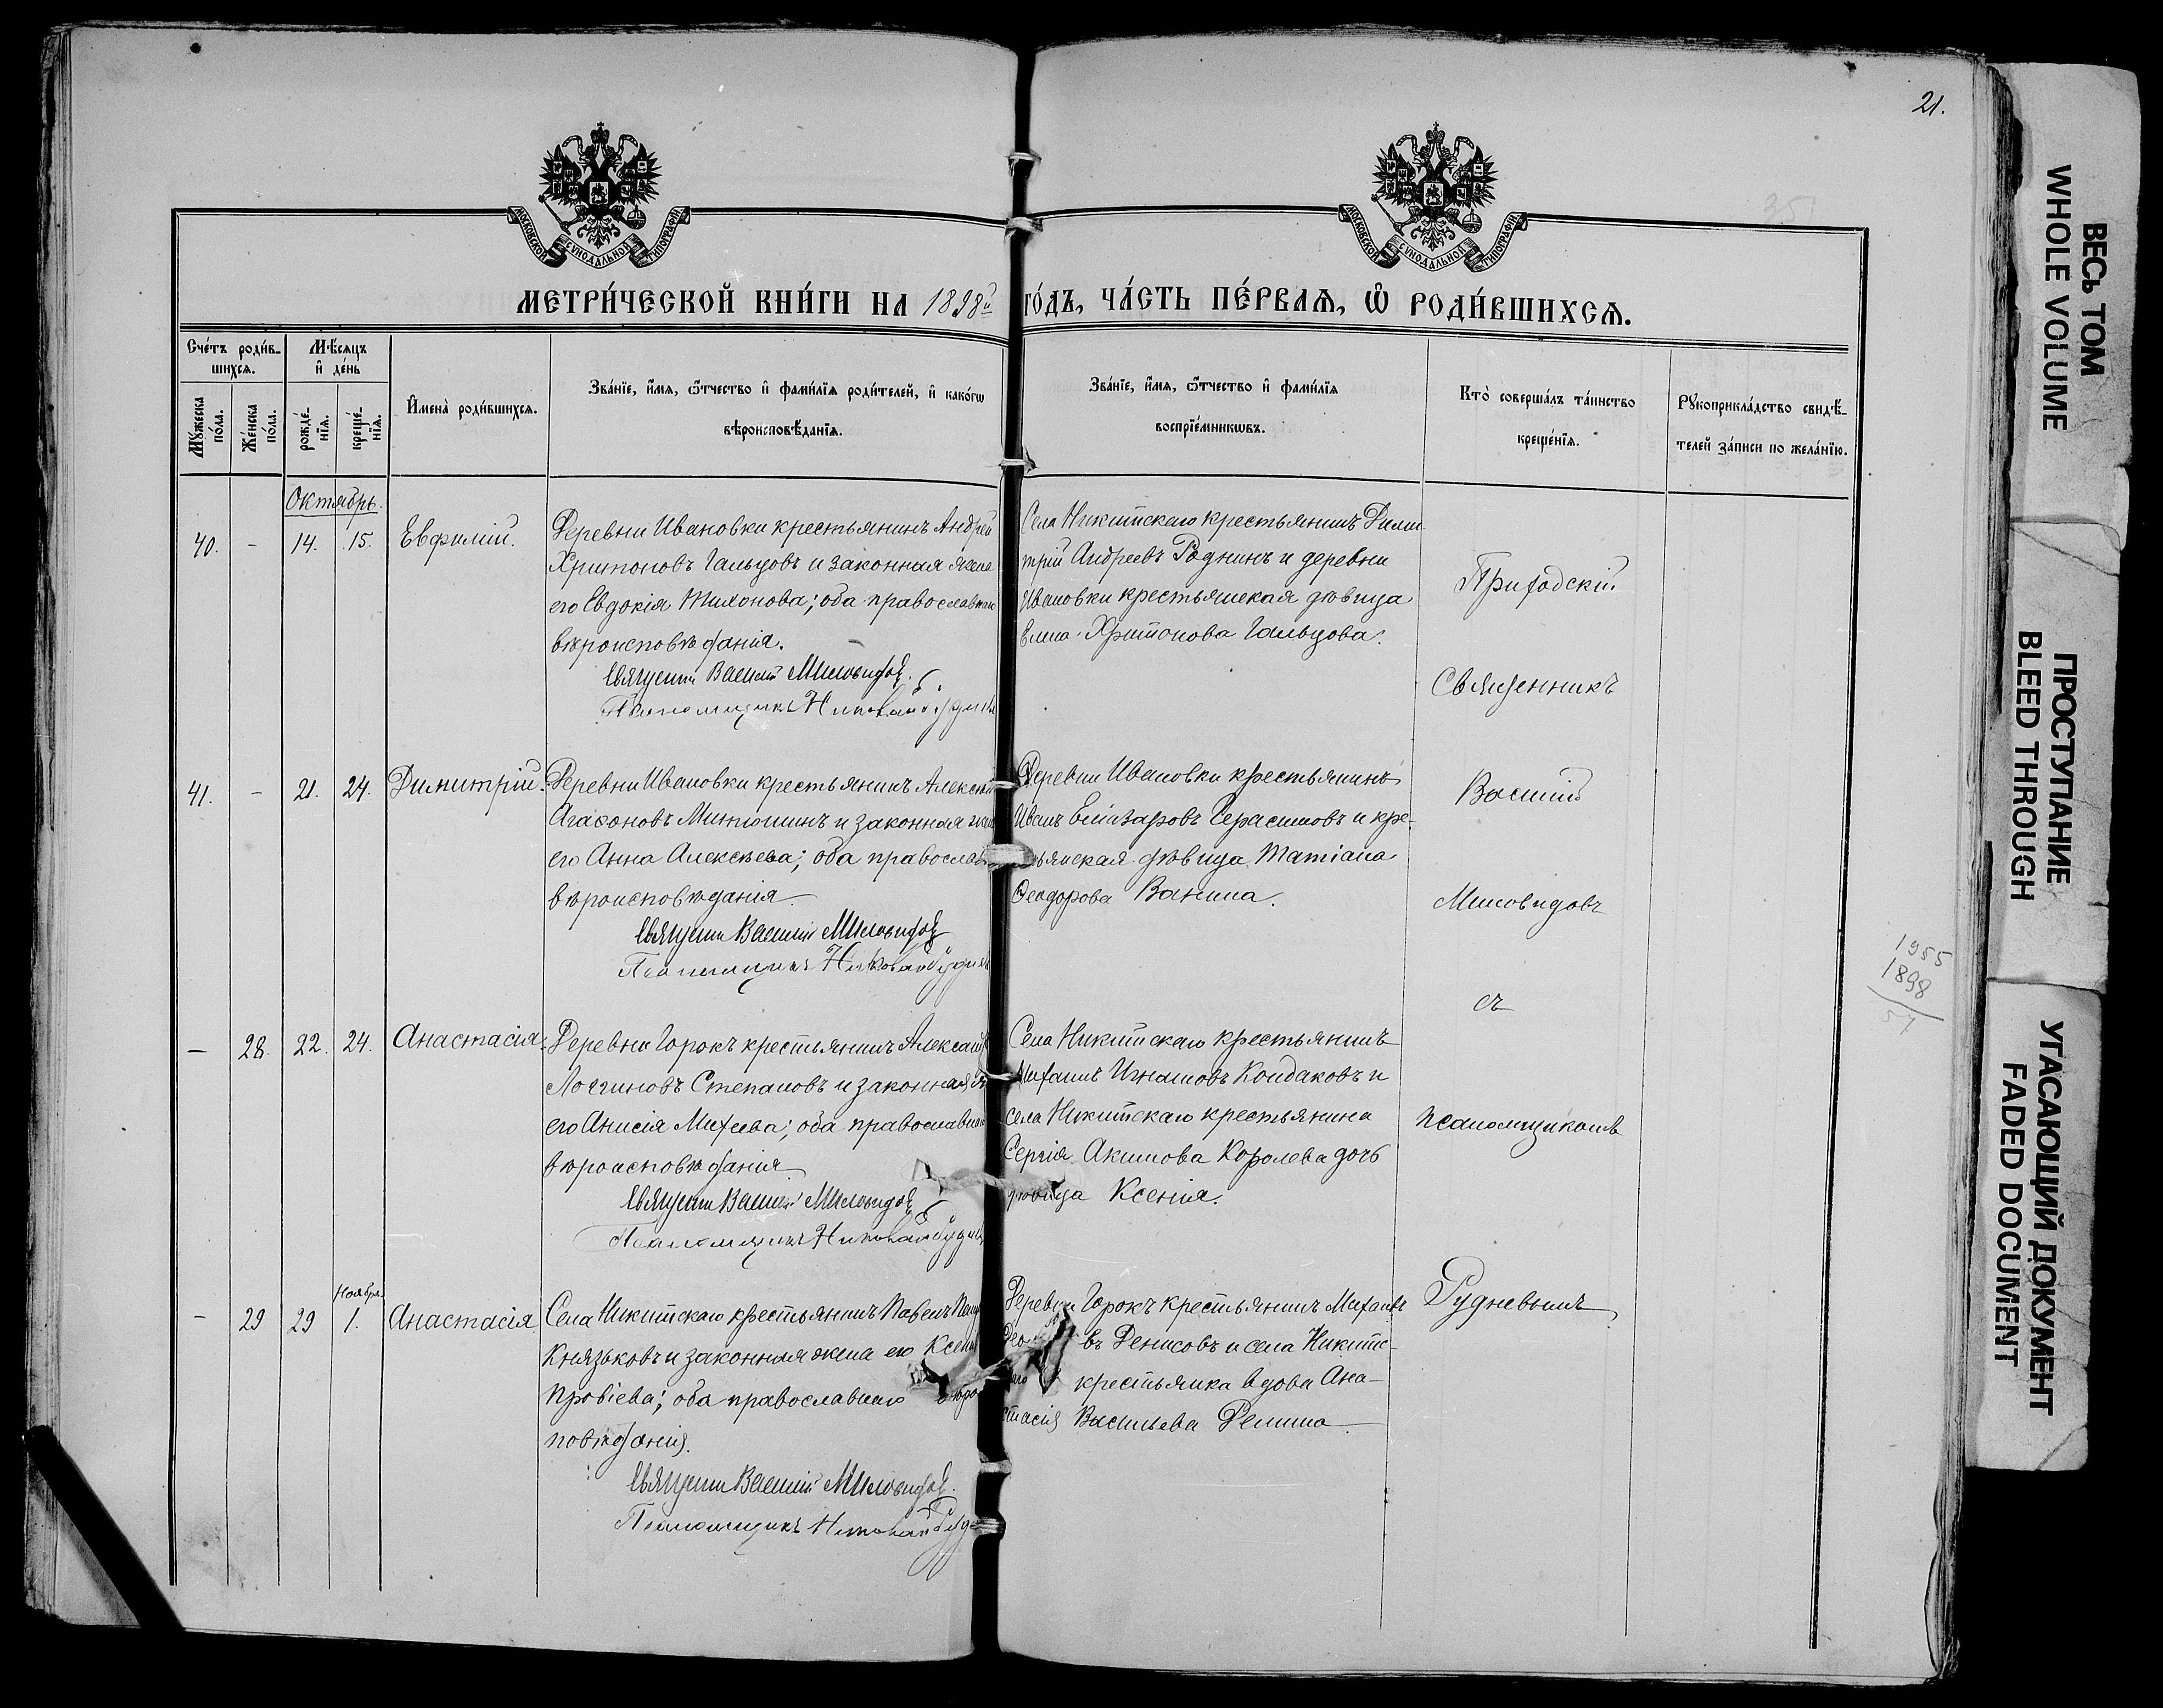 21.
МОСКОВСКОЙ СѴНОДАЛЬНОЙ ТИПОГРАФІИ
МОСКОВСКОЙ СѴНОДАЛЬНОЙ ТИПОГРАФІИ
МЕТРИ́ЧЕСКОЙ КНИ́ГИ НА 1898й ГО́ДЪ, ЧА́СТЬ ПЕ́РВАѦ, Ѡ҆ РОДИ́ВШИХСѦ.
Сче́тъ роди́в-
шихсѧ.
Мѣ́сѧцъ
и҆ де́нь
Мꙋ́жеска
по́ла.
Же́нска
по́ла.
рожде́-
нїѧ.
креще́-
нїѧ.
И҆мена̀ роди́вшихсѧ.
Зва́нїе, и҆́мѧ, ѻ҆́тчество и҆ фами́лїѧ роди́телей, и҆ како́гѡ
вѣроисповѣ́данїѧ.
Зва́нїе, и҆́мѧ, ѻ҆́тчество и҆ фами́лїѧ
воспрїе́мникѡвъ.
Кто̀ соверша́лъ та́инство
креще́нїѧ.
Рꙋкоприкла́дство свидѣ́-
телей за́писи по жела́нїю.
Октябрь.
40.
-
14.
15.
Евфимій.
Деревни Ивановки крестьянинъ Андрей
Харитоновъ Гальцовъ и законная жена
его Евдокія Тихонова; оба православнаго
вѣроисповѣданія.
Священникъ Василій Миловидовъ.
Псаломщикъ Николай Рудневъ
Села Никитскаго крестьянинъ Дими-
трій Андреевъ Роднинъ и деревни
Ивановки крестьянская дѣвица
Елена Харитонова Гальцова.
Приходскій
Священникъ
Василій
Миловидовъ
съ
псаломщикомъ
Рудневымъ
41.
-
21.
24.
Димитрій.
Деревни Ивановки крестьянинъ Алексѣй
Агафоновъ Митюшинъ и законная жена
его Анна Алексѣева; оба православ
вѣроисповѣданія
Священникъ Василій Миловидовъ
Псаломщикъ Николай Рудневъ
Деревни Ивановки крестьянинъ
Иванъ Елеазаровъ Герасимовъ и кре-
ьянская дѣвица Татіана
Ѳеодорова Ванина.
-
28.
22.
24.
Анастасія.
Деревни Горокъ крестьянинъ Александръ
Логгиновъ Степановъ и законная ж
его Анисія Михеева; оба православнаго
вѣроисповѣданія
Священникъ Василій Миловидовъ
Псаломщикъ Николай Рудневъ
Села Никитскаго крестьянинъ
Михаилъ Игнатовъ Кондаковъ и
села Никитскаго крестьянина
Сергія Акимова Королева дочь
дѣвица Ксенія.
-
29
29
Ноября
1.
Анастасія
Села Никитскаго крестьянинъ Павелъ
Князьковъ и законная жена его Ксенія
Провіева; оба православнаго вѣро
повѣданія.
Священникъ Василій Миловидовъ.
Псаломщикъ Николай Рудне
Деревни Горокъ крестьянинъ Михаилъ
въ Денисовъ и села Никитс-
крестьянка вдова Ана-
стасія Васильева Демина
1955
1898
57
ВЕСЬ ТОМ
WHOLE VOLUME
ПРОСТУПАНИЕ
BLEED THROUGH
УГАСАЮЩИЙ ДОКУМЕНТ
FADED DOCUMENT